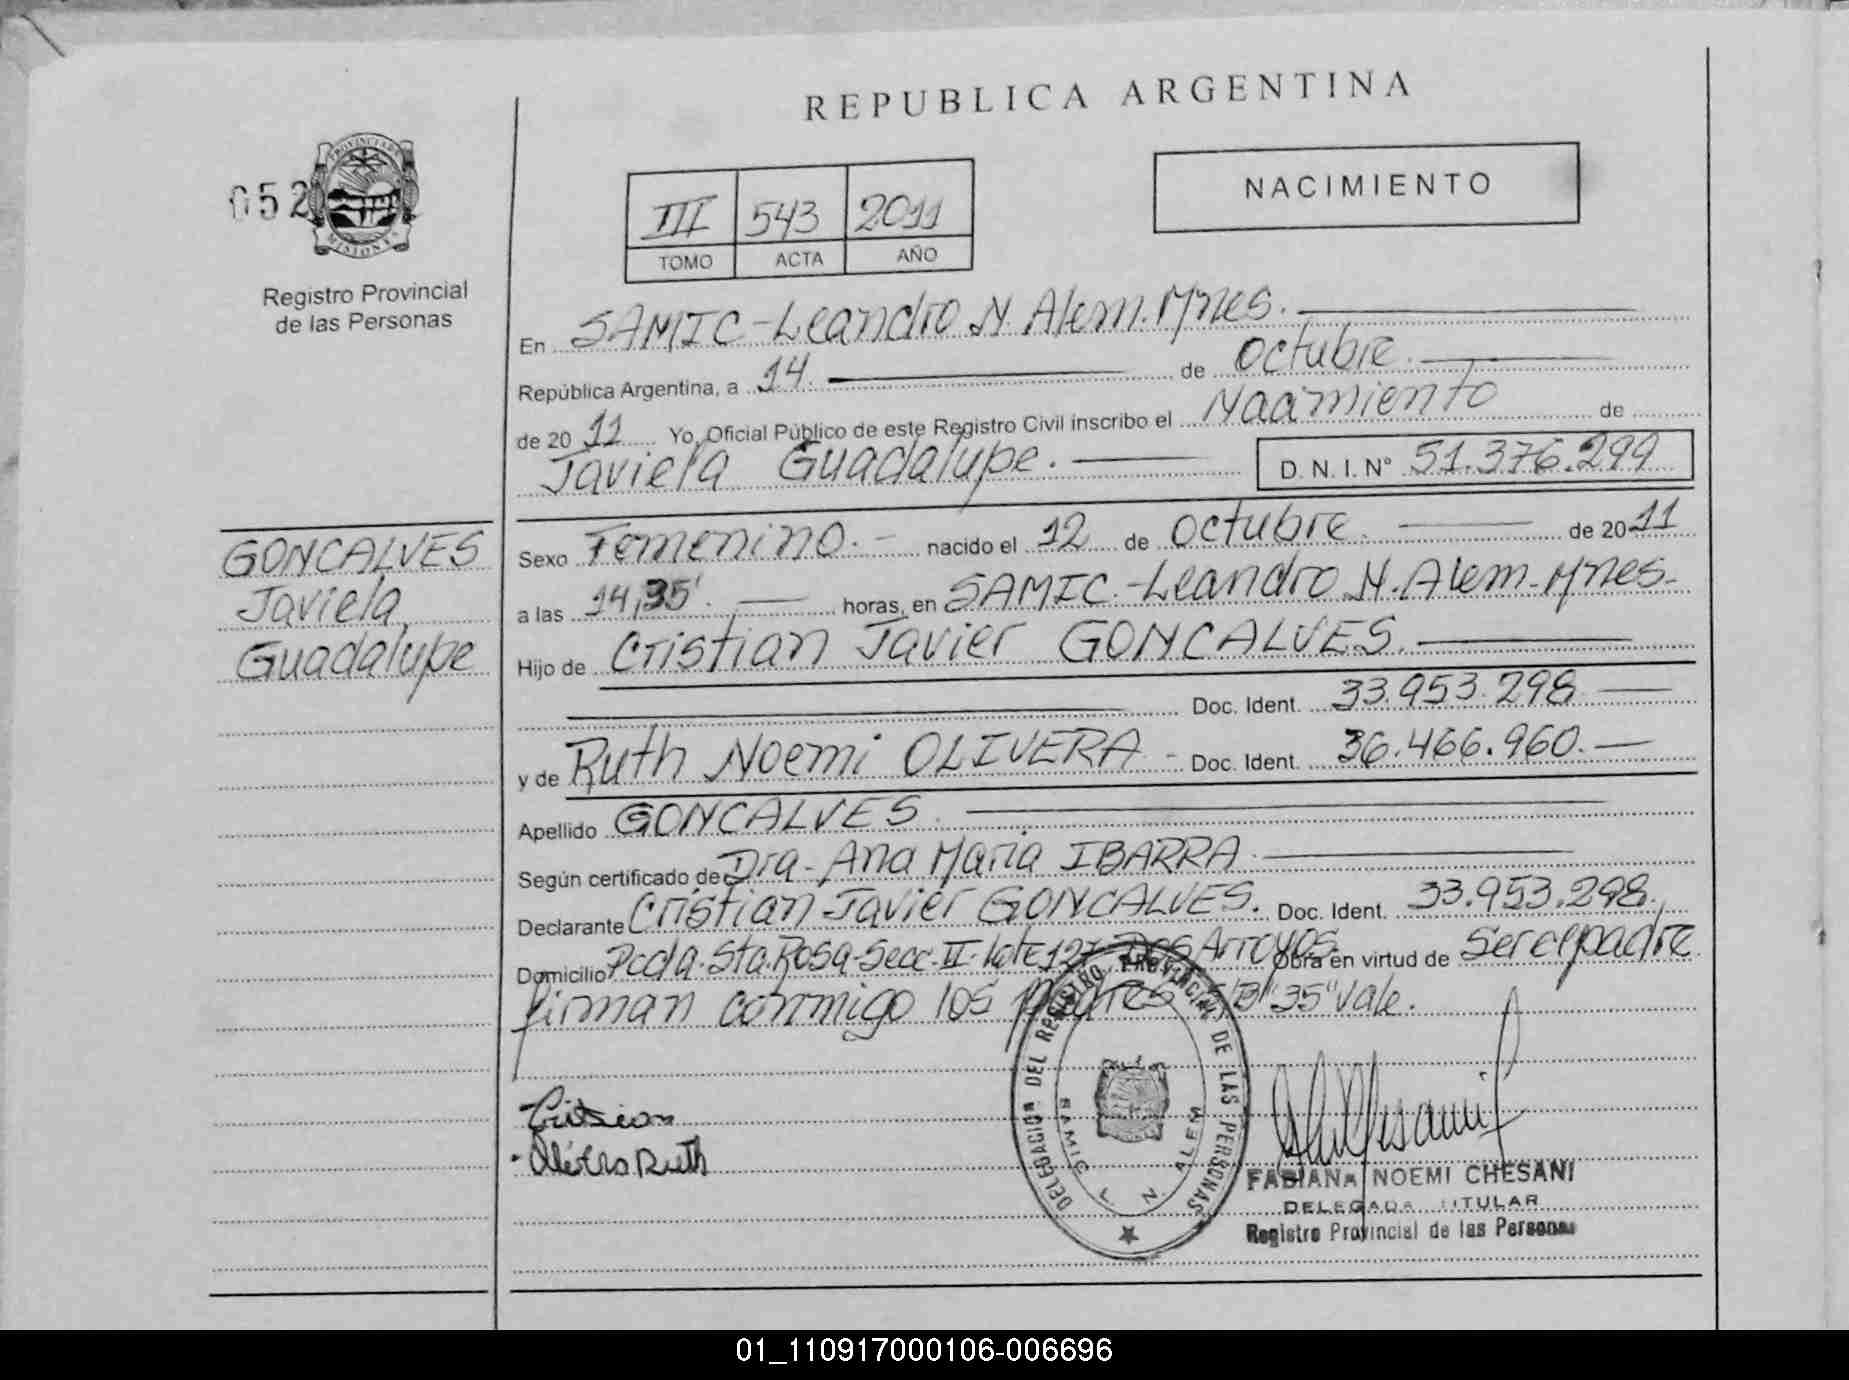 REPUBLICA ARGENTINA
052
PROVINCIA DE MISIONES
Registro Provincial
de las Personas
III 543 2011
TOMO ACTA AÑO
NACIMIENTO
En SAMIC-Leandro N. Alem. Mnes.
República Argentina, a 14. de octubre.
de 20 11 Yo, Oficial Público de este Registro Civil inscribo el Nacimiento de
Javiela Guadalupe. D. N. I. Nº 51.376.299
Sexo Femenino.- nacido el 12 de octubre. de 20 11
a las 14,35'. horas, en SAMIC.-Leandro N. Alem-Mnes-
Hijo de Cristian Javier GONCALVES.
Doc. Ident. 33.953.298
y de Ruth Noemi OLIVERA - Doc. Ident. 36.466.960.
Apellido GONCALVES.
Según certificado de Dra- Ana Maria IBARRA.
Declarante Cristian Javier GONCALVES. Doc. Ident. 33.953.298.
Domicilio Pcda. Sta. Rosa-Secc-II-Lote 127 Dos Arroyos Obra en virtud de Ser el padre
firman conmigo los padres S/B "35" Vale.
GONCALVES
Javiela
Guadalupe
Olivera Ruth
DELEGACION DEL REGISTRO PROVINCIAL DE LAS PERSONAS
SAMIC L. N. ALEM
FABIANA NOEMI CHESANI
DELEGADA TITULAR
Registro Provincial de las Personas
01_110917000106-006696